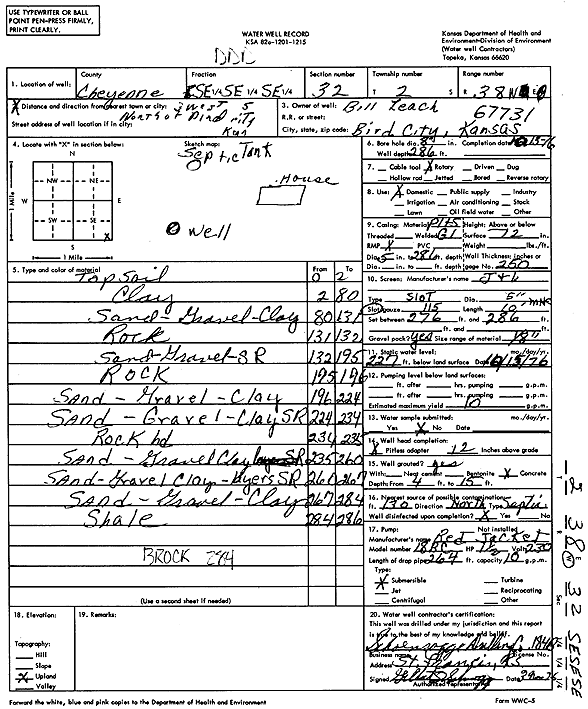 USE TYPEWRITER OR BALL
POINT PEN-PRESS FIRMLY,
PRINT CLEARLY.
WATER WELL RECORD
KSA 82a-1201-1215
Kansas Department of Health and
Environment-Division of Environment
(Water well Contractors)
Topeka, Kansas 66620
DDD
1. Location of well:
County
Cheyenne
Fraction
SE 1/4 SE 1/4 SE 1/4
Section number
32
Township number
T 2 S
Range number
R 38
Distance and direction from nearest town or city: 3 West 5
North of Bird city
Kan
Street address of well location if in city:
3. Owner of well: Bill Leach
R.R. or street: 67731
City, state, zip code: Bird City, Kansas
4. Locate with "X" in section below:
N
NW NE
W E
SW SE
X
S
1 Mile
1 Mile
Sketch map:
Septic Tank
House
Well
6. Bore hole dia. in. Completion date
Well depth 286 ft.
7. Cable tool X Rotary Driven Dug
Hollow rod Jetted Bored Reverse rotary
8. Use: X Domestic Public supply Industry
Irrigation Air conditioning Stock
Lawn Oil field water Other
9. Casing: Material Height: Above or below
Threaded Welded Surface 12 in.
RMP X PVC Weight lbs./ft.
Dia. 5 in. to 286 ft. depth Wall Thickness: inches or
Dia. in. to ft. depth gage No. 250
10. Screen: Manufacturer's name
Type Slot Dia. 5"
Slot/gauze 115 Length 60
Set between 276 ft. and 286 ft.
ft. and ft.
Gravel pack? yes Size range of material
11. Static water level: mo./day/yr.
227 ft. below land surface Date
12. Pumping level below land surfaces:
ft. after hrs. pumping g.p.m.
ft. after hrs. pumping g.p.m.
Estimated maximum yield 10 g.p.m.
13. Water sample submitted: mo./day/yr.
Yes X No Date
14. Well head completion:
X Pitless adapter 12 Inches above grade
15. Well grouted? yes
With: Neat cement Bentonite X Concrete
Depth: From 4 ft. to 15 ft.
16. Nearest source of possible contamination:
ft. 130 Direction North Type septic
Well disinfected upon completion? X Yes No
17. Pump: Not installed
Manufacturer's name Red Jacket
Model number HP 1 1/2 Volts 230
Length of drop pipe 264 ft. capacity 10 g.p.m.
Type:
X Submersible Turbine
Jet Reciprocating
Centrifugal Other
5. Type and color of material From To
Top Soil 0 2
Clay 2 80
Sand-Gravel-Clay 80 131
Rock 131 132
Sand-Gravel-SR 132 195
Rock 195 196
Sand-Gravel-Clay 196 224
Sand-Gravel-Clay SR 224 234
Rock hd 234 235
Sand-Gravel Clay layers SR 235 260
Sand-Gravel Clay-layers SR 260 267
Sand-Gravel-Clay 267 284
Shale 284 286
BROCK 284
(Use a second sheet if needed)
18. Elevation:
Topography:
Hill
Slope
X Upland
Valley
19. Remarks:
20. Water well contractor's certification:
This well was drilled under my jurisdiction and this report
is true to the best of my knowledge and belief.
Business name License No.
Address St. Francis, Ks.
Signed Date
Authorized representative
T 2 S R 38 W Sec 32 SE SE SE
1/4 1/4 1/4
Forward the white, blue and pink copies to the Department of Health and Environment
Form WWC-5